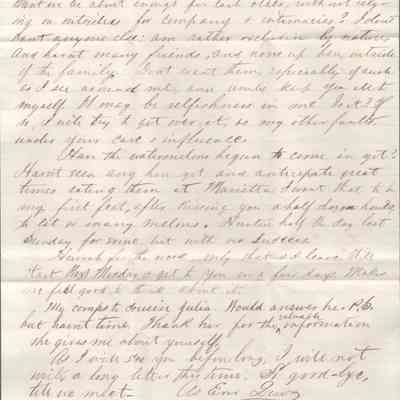 that we be about enough for each other, without rely-
ing on outsiders for company & intimacies? I don't
want anyone else: am rather exclusive by nature,
and havnt many friends, and none up here, outside
of the family. Dont want them, especially of such
as I see around me, and would keep you all to
myself. It may be selfishness in me. Is it? If
so, I will try to get over it, as my other faults
under your care & influence.
Have the watermelons begun to come in yet?
Havnt seen any here yet and anticipate great
times eating them at Marietta. I want that to be
my first feat, after kissing you a half dozen
to eat as many melons. Hunted half the day last
Sunday, for some, but with no success.
Hurrah for the
next Monday & get to you in a few days. Makes
me feel good to think about it.
My comps to Cousin Julia. Would answer her P.C.
but havnt time. Thank her for the valuable information
she gives me about yourself.
As I will see you before long, I will not
write a long letter this time. So good-bye,
till we meet- As Ever